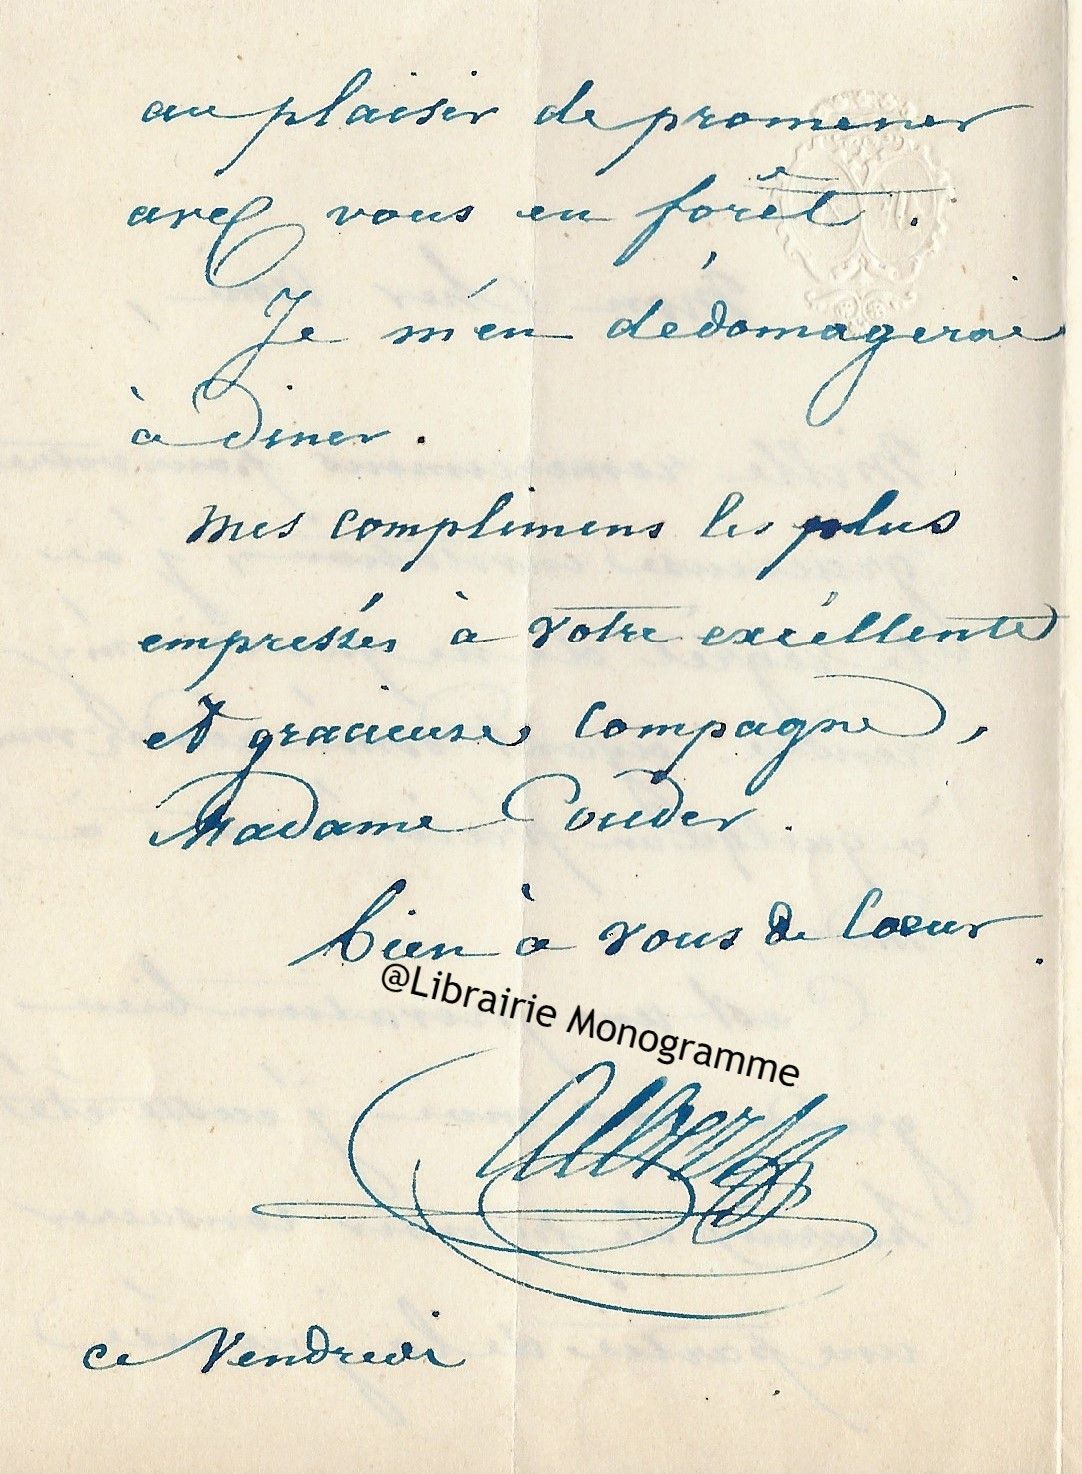 au plaisir de promener
avec vous en forêt.
Je m'en dédomagerai
à diner.
mes complimens les plus
empressés à votre excéllente
et gracieuse compagne,
Madame Couder.
bien à vous de coeur.
@Librairie Monogramme
Albert
ce Vendredi